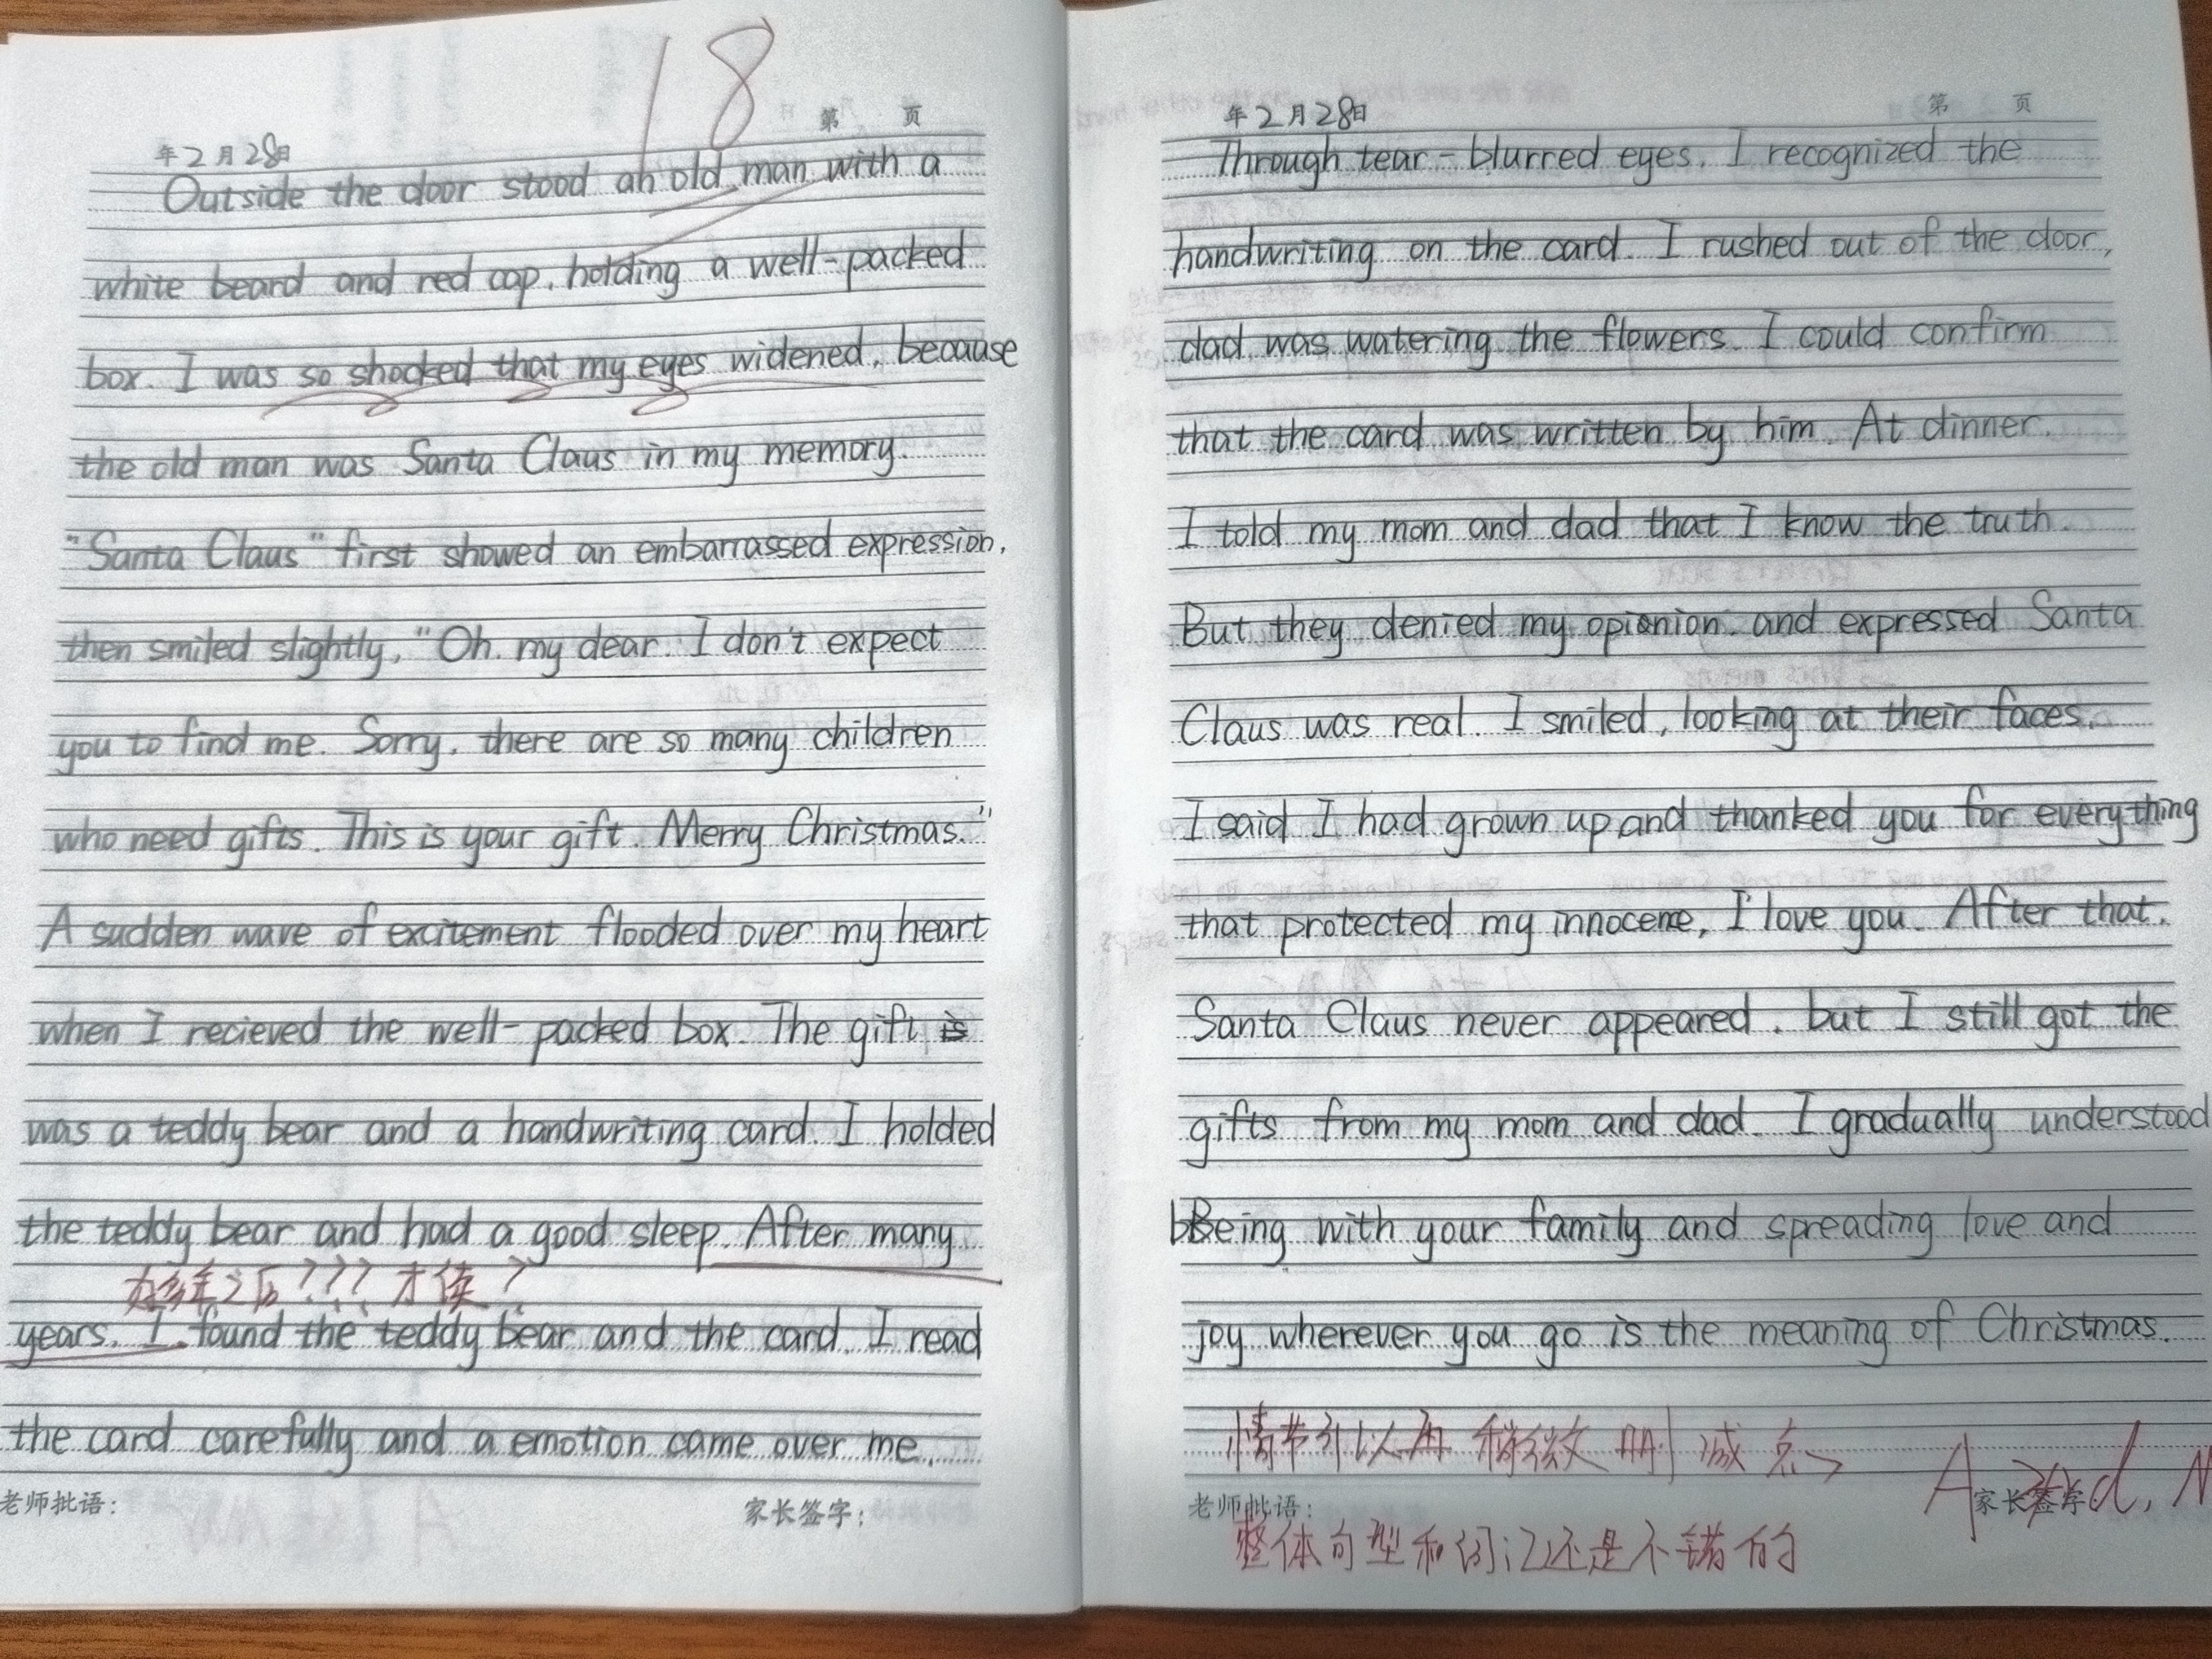 18
第 页
年2月28日
Outside the door stood an old man with a
white beard and red cap, holding a well-packed
box. I was so shocked that my eyes widened, because
the old man was Santa Claus in my memory.
"Santa Claus" first showed an embarrassed expression,
then smiled slightly, "Oh. my dear. I don't expect
you to find me. Sorry, there are so many children
who need gifts. This is your gift. Merry Christmas."
A sudden wave of excitement flooded over my heart
when I recieved the well-packed box. The gift is
was a teddy bear and a handwriting card. I holded
the teddy bear and had a good sleep. After many
好多年之后??? 才读?
years. I found the teddy bear and the card. I read
the card carefully and a emotion came over me.
老师批语: 家长签字:
第 页
年2月28日
Through tear-blurred eyes, I recognized the
handwriting on the card. I rushed out of the door,
dad was watering the flowers. I could confirm
that the card was written by him. At dinner.
I told my mom and dad that I know the truth.
But they denied my opionion. and expressed Santa
Claus was real. I smiled, looking at their faces.
I said I had grown up and thanked you for everything
that protected my innocene, I love you. After that.
Santa Claus never appeared, but I still got the
gifts from my mom and dad. I gradually understood
Being with your family and spreading love and
joy wherever you go is the meaning of Christmas.
情节可以再稍微删减点
老师批语: 家长签字:
整体句型和词汇还是不错的